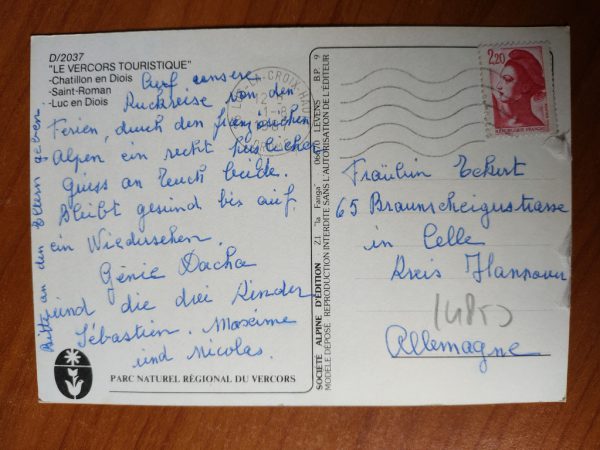 D/2037
"LE VERCORS TOURISTIQUE"
-Chatillon en Diois
-Saint-Roman
-Luc en Diois
Auf unsere
Ruckreise von den
Ferien, durch den französischen
Alpen ein recht herzlichen
Gruss an Euch beide.
Bleibt gesund bis auf
ein Wiedersehen.
Génie Dacha
und die drei Kinder
Sébastien. Maxime
und Nicolas.
Bitte an den Eltern geben
PARC NATUREL RÉGIONAL DU VERCORS
SOCIÉTÉ ALPINE D'ÉDITION Z.I. "la Fanga" 06670 LEVENS B.P. 9
MODÈLE DÉPOSÉ REPRODUCTION INTERDITE SANS L'AUTORISATION DE L'ÉDITEUR
2,20
RÉPUBLIQUE FRANÇAISE
Fräulein Eckert
65 Braunscheigerstrasse
in Celle
Kreis Hannover
Allemagne